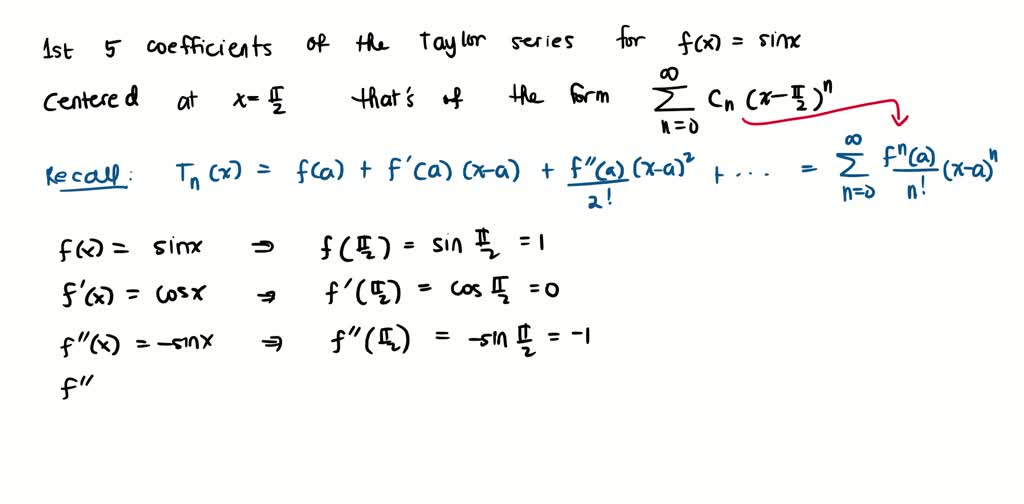 1st 5 coefficients of the Taylor series for f(x) = sinx
Centered at x = π/2 that's of the form ∑_{n=0}^{∞} Cn (x-π/2)^n
Recall: Tn(x) = f(a) + f'(a) (x-a) + f''(a)/2! (x-a)^2 + ... = ∑_{n=0}^{∞} f^n(a)/n! (x-a)^n
f(x) = sinx ⇒ f(π/2) = sin π/2 = 1
f'(x) = cosx ⇒ f'(π/2) = cos π/2 = 0
f''(x) = -sinx ⇒ f''(π/2) = -sin π/2 = -1
f''